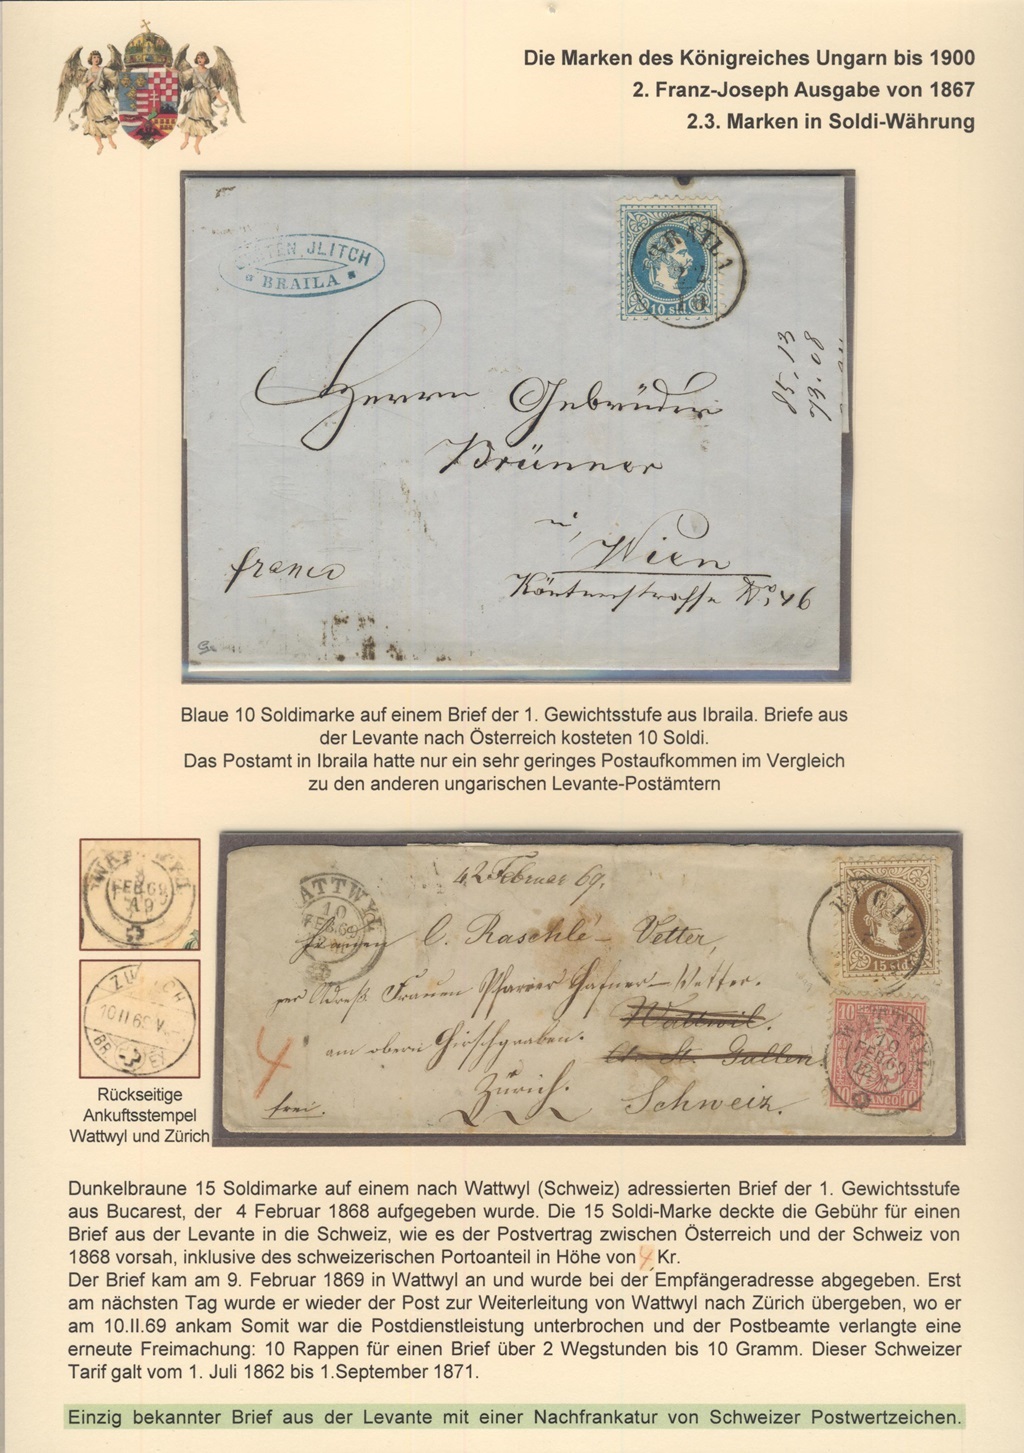 Die Marken des Königreiches Ungarn bis 1900
2. Franz-Joseph Ausgabe von 1867
2.3. Marken in Soldi-Währung
JLITCH
BRAILA
10 sld.
85.13
73.08
Herrn Gebrüder
Brünner
in
Wien
franco
Kärntnerstrasse No. 46
Blaue 10 Soldimarke auf einem Brief der 1. Gewichtsstufe aus Ibraila. Briefe aus
der Levante nach Österreich kosteten 10 Soldi.
Das Postamt in Ibraila hatte nur ein sehr geringes Postaufkommen im Vergleich
zu den anderen ungarischen Levante-Postämtern
FEB 69
ZÜRICH
10 II 69
BR
Rückseitige
Ankuftsstempel
Wattwyl und Zürich
Februar 69.
ATTWYL
10
FEB.69
Frauen C. Raschlé - Vetter,
per Adress Frauen Pfarrer Hafner-Vetter.
Wattwil.
am obern Hirschgraben.
Ct. St. Gallen
Zürich.
4
frei.
Schweiz.
15 sld.
10
FEB 69
FRANCO
10
Dunkelbraune 15 Soldimarke auf einem nach Wattwyl (Schweiz) adressierten Brief der 1. Gewichtsstufe
aus Bucarest, der 4 Februar 1868 aufgegeben wurde. Die 15 Soldi-Marke deckte die Gebühr für einen
Brief aus der Levante in die Schweiz, wie es der Postvertrag zwischen Österreich und der Schweiz von
1868 vorsah, inklusive des schweizerischen Portoanteil in Höhe von 4 Kr.
Der Brief kam am 9. Februar 1869 in Wattwyl an und wurde bei der Empfängeradresse abgegeben. Erst
am nächsten Tag wurde er wieder der Post zur Weiterleitung von Wattwyl nach Zürich übergeben, wo er
am 10.II.69 ankam Somit war die Postdienstleistung unterbrochen und der Postbeamte verlangte eine
erneute Freimachung: 10 Rappen für einen Brief über 2 Wegstunden bis 10 Gramm. Dieser Schweizer
Tarif galt vom 1. Juli 1862 bis 1.September 1871.
Einzig bekannter Brief aus der Levante mit einer Nachfrankatur von Schweizer Postwertzeichen.